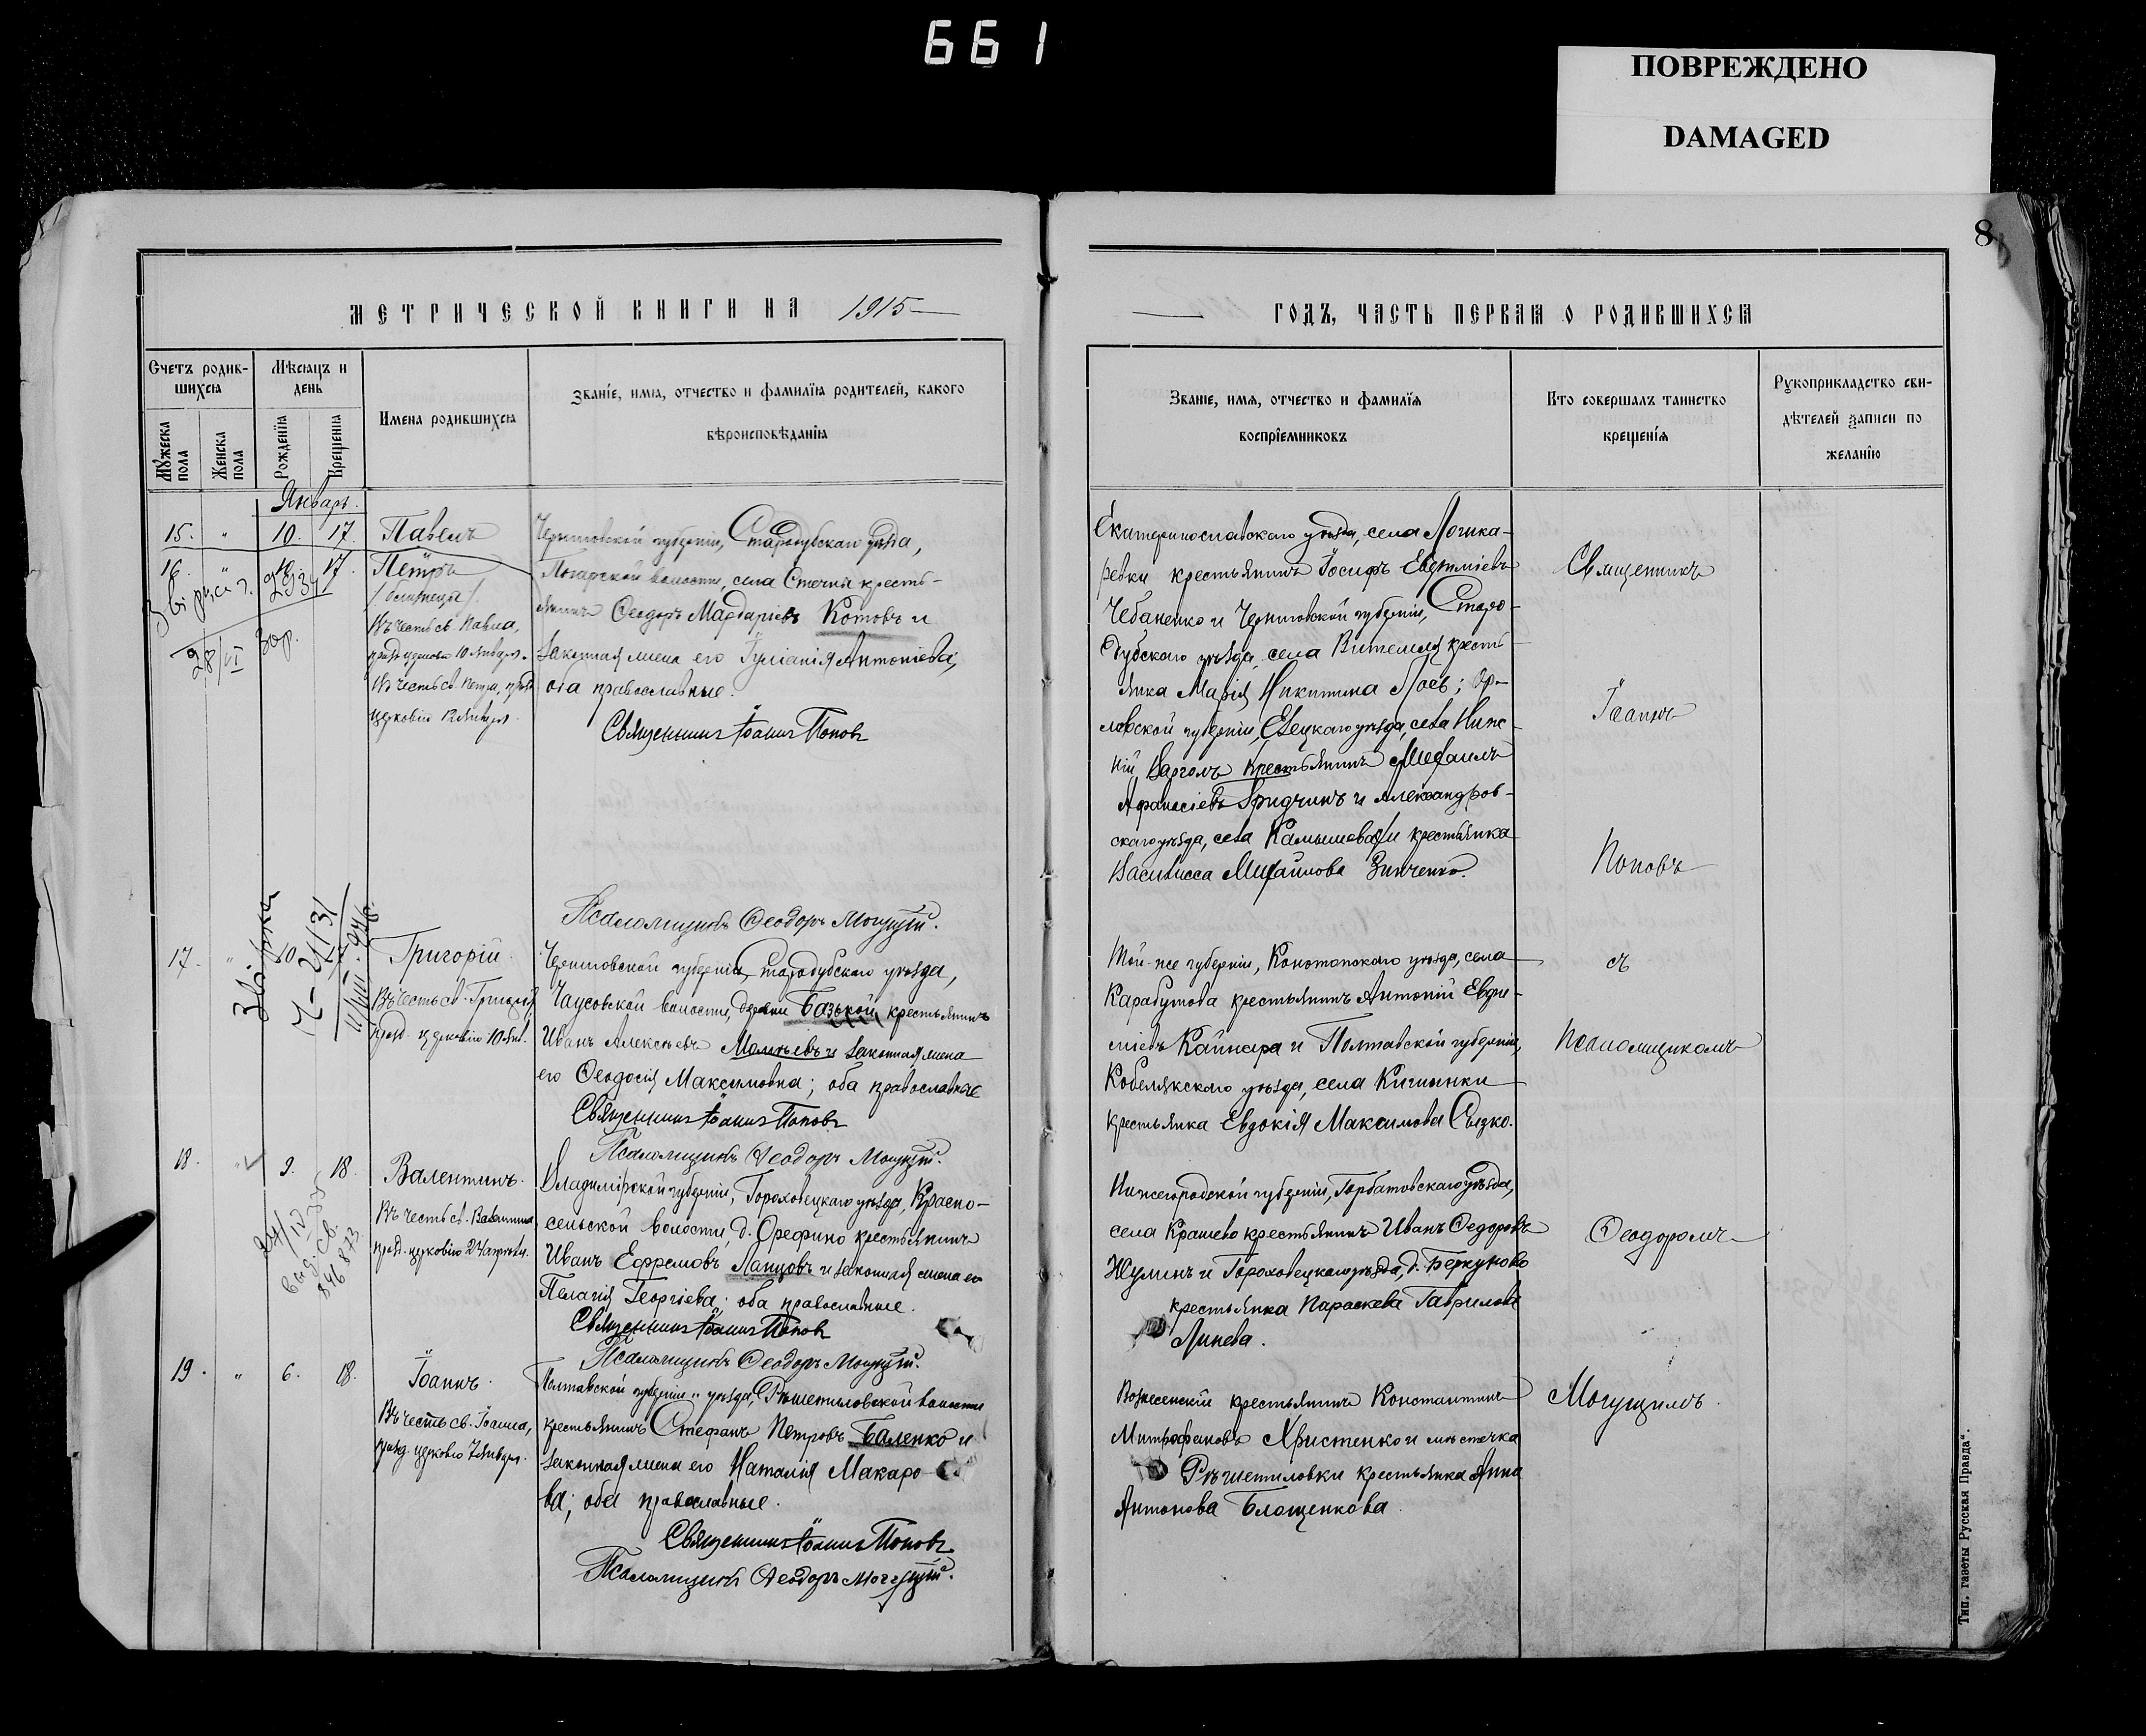 661
ПОВРЕЖДЕНО
DAMAGED
8
МЕТРИЧЕСКОЙ КНИГИ НА 1915
ГОДЪ, ЧАСТЬ ПЕРВАЯ О РОДИВШИХСЯ
Счетъ родив-
шихся
Мѣсяцъ и
день
Имена родившихся
Званіе, имя, отчество и фамилія родителей, какого
вѣроисповѣданія
Мужеска пола
Женска пола
Рожденія
Крещенія
Званіе, имя, отчество и фамилія
воспріемниковъ
Кто совершалъ таинство
крещенія
Рукоприкладство сви-
дѣтелей записи по
желанію
Январь.
15. " 10. 17. Павелъ
16. " 17. Петръ
/близнецы/.
Въ честь св. Павла,
празд. церковію 10 Января.
Въ честь св. Петра, празд.
церковію 12 Января.
28/VI
Черниговской губерніи, Стародубскаго уѣзда,
Погарской волости, села Стечни кресть-
янинъ Ѳеодоръ Мардаріевъ Котовъ и
законная жена его Іуліанія Антоніева;
оба православные.
Священникъ Іоаннъ Поповъ
Псаломщикъ Ѳеодоръ Могущій.
Екатеринославскаго уѣзда, села
ревки крестьянинъ Іосифъ Евѳиміевъ
Чебаненко и Черниговской губерніи, Старо-
дубскаго уѣзда, села Витемля кресть-
янка Марія Никитина Лоевъ; Ор-
ловской губерніи, Елецкаго уѣзда, села Ниж-
ній Варголъ крестьянинъ Михаилъ
Афанасіевъ Гридчинъ и Александров-
скаго уѣзда, села Камышевахи крестьянка
Василисса Михайлова Зинченко.
Священникъ
Іоаннъ
Поповъ
съ
Псаломщикомъ
Ѳеодоромъ
Могущимъ.
17. " 10. Григорій.
Въ честь св. Григорія,
празд. церковію 10 Янв.
Черниговской губерніи, Стародубскаго уѣзда,
Чаусовской волости, деревни Базькой крестьянинъ
Иванъ Алексѣевъ и законная жена
его Ѳеодосія Максимовна; оба православные
Священникъ Іоаннъ Поповъ
Псаломщикъ Ѳеодоръ Могущій.
Той-же губерніи, Конотопскаго уѣзда, села
Карабутова крестьянинъ Антоній Евѳи-
міевъ Кайнара и Полтавской губерніи,
Кобелякскаго уѣзда, села Кишинки
крестьянка Евдокія Максимова
18. " 9. 18. Валентинъ.
Въ честь св. Валентина,
празд. церковію 24 апрѣля.
Владимірской губерніи, Гороховецкаго уѣзда, Красно-
сельской волости, д. Орефино крестьянинъ
Иванъ Ефремовъ Лапшовъ и законная жена его
Пелагія Георгіева; оба православные.
Священникъ Іоаннъ Поповъ
Псаломщикъ Ѳеодоръ Могущій.
Нижегородской губерніи, Горбатовскаго уѣзда,
села Крашево крестьянинъ Иванъ Ѳедоровъ
Жулинъ и Гороховецкаго уѣзда, д. Беркуново
крестьянка Параскева Гаврилова
Линева.
19. " 6. 18. Іоаннъ.
Въ честь св. Іоанна,
празд. церковію 7 Января.
Полтавской губерніи и уѣзда, Рѣшетиловской волости
крестьянинъ Стефанъ Петровъ Баленко и
законная жена его Наталія Макаро-
ва; оба православные.
Священникъ Іоаннъ Поповъ
Псаломщикъ Ѳеодоръ Могущій.
Вознесенскій крестьянинъ Константинъ
Митрофановъ Христенко и мѣстечка
Рѣшетиловки крестьянка Анна
Антонова Блощенкова.
Тип. газеты Русская Правда".